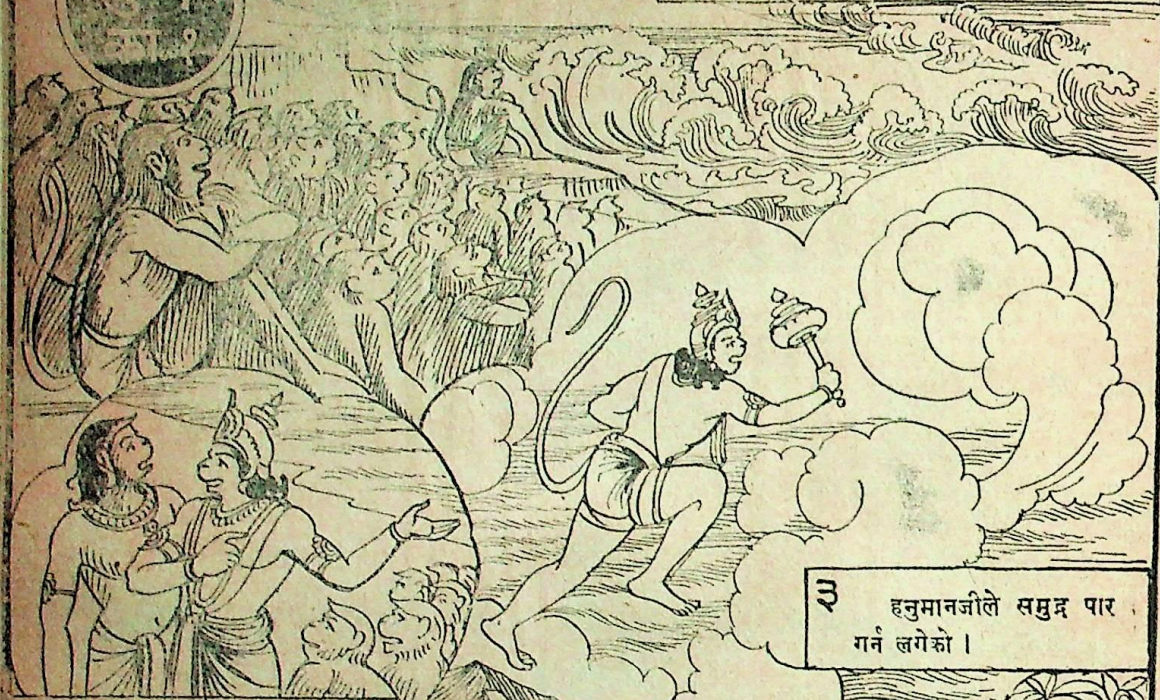 का १
३ हनुमानजीले समुद्र पार
गर्न लगेको ।